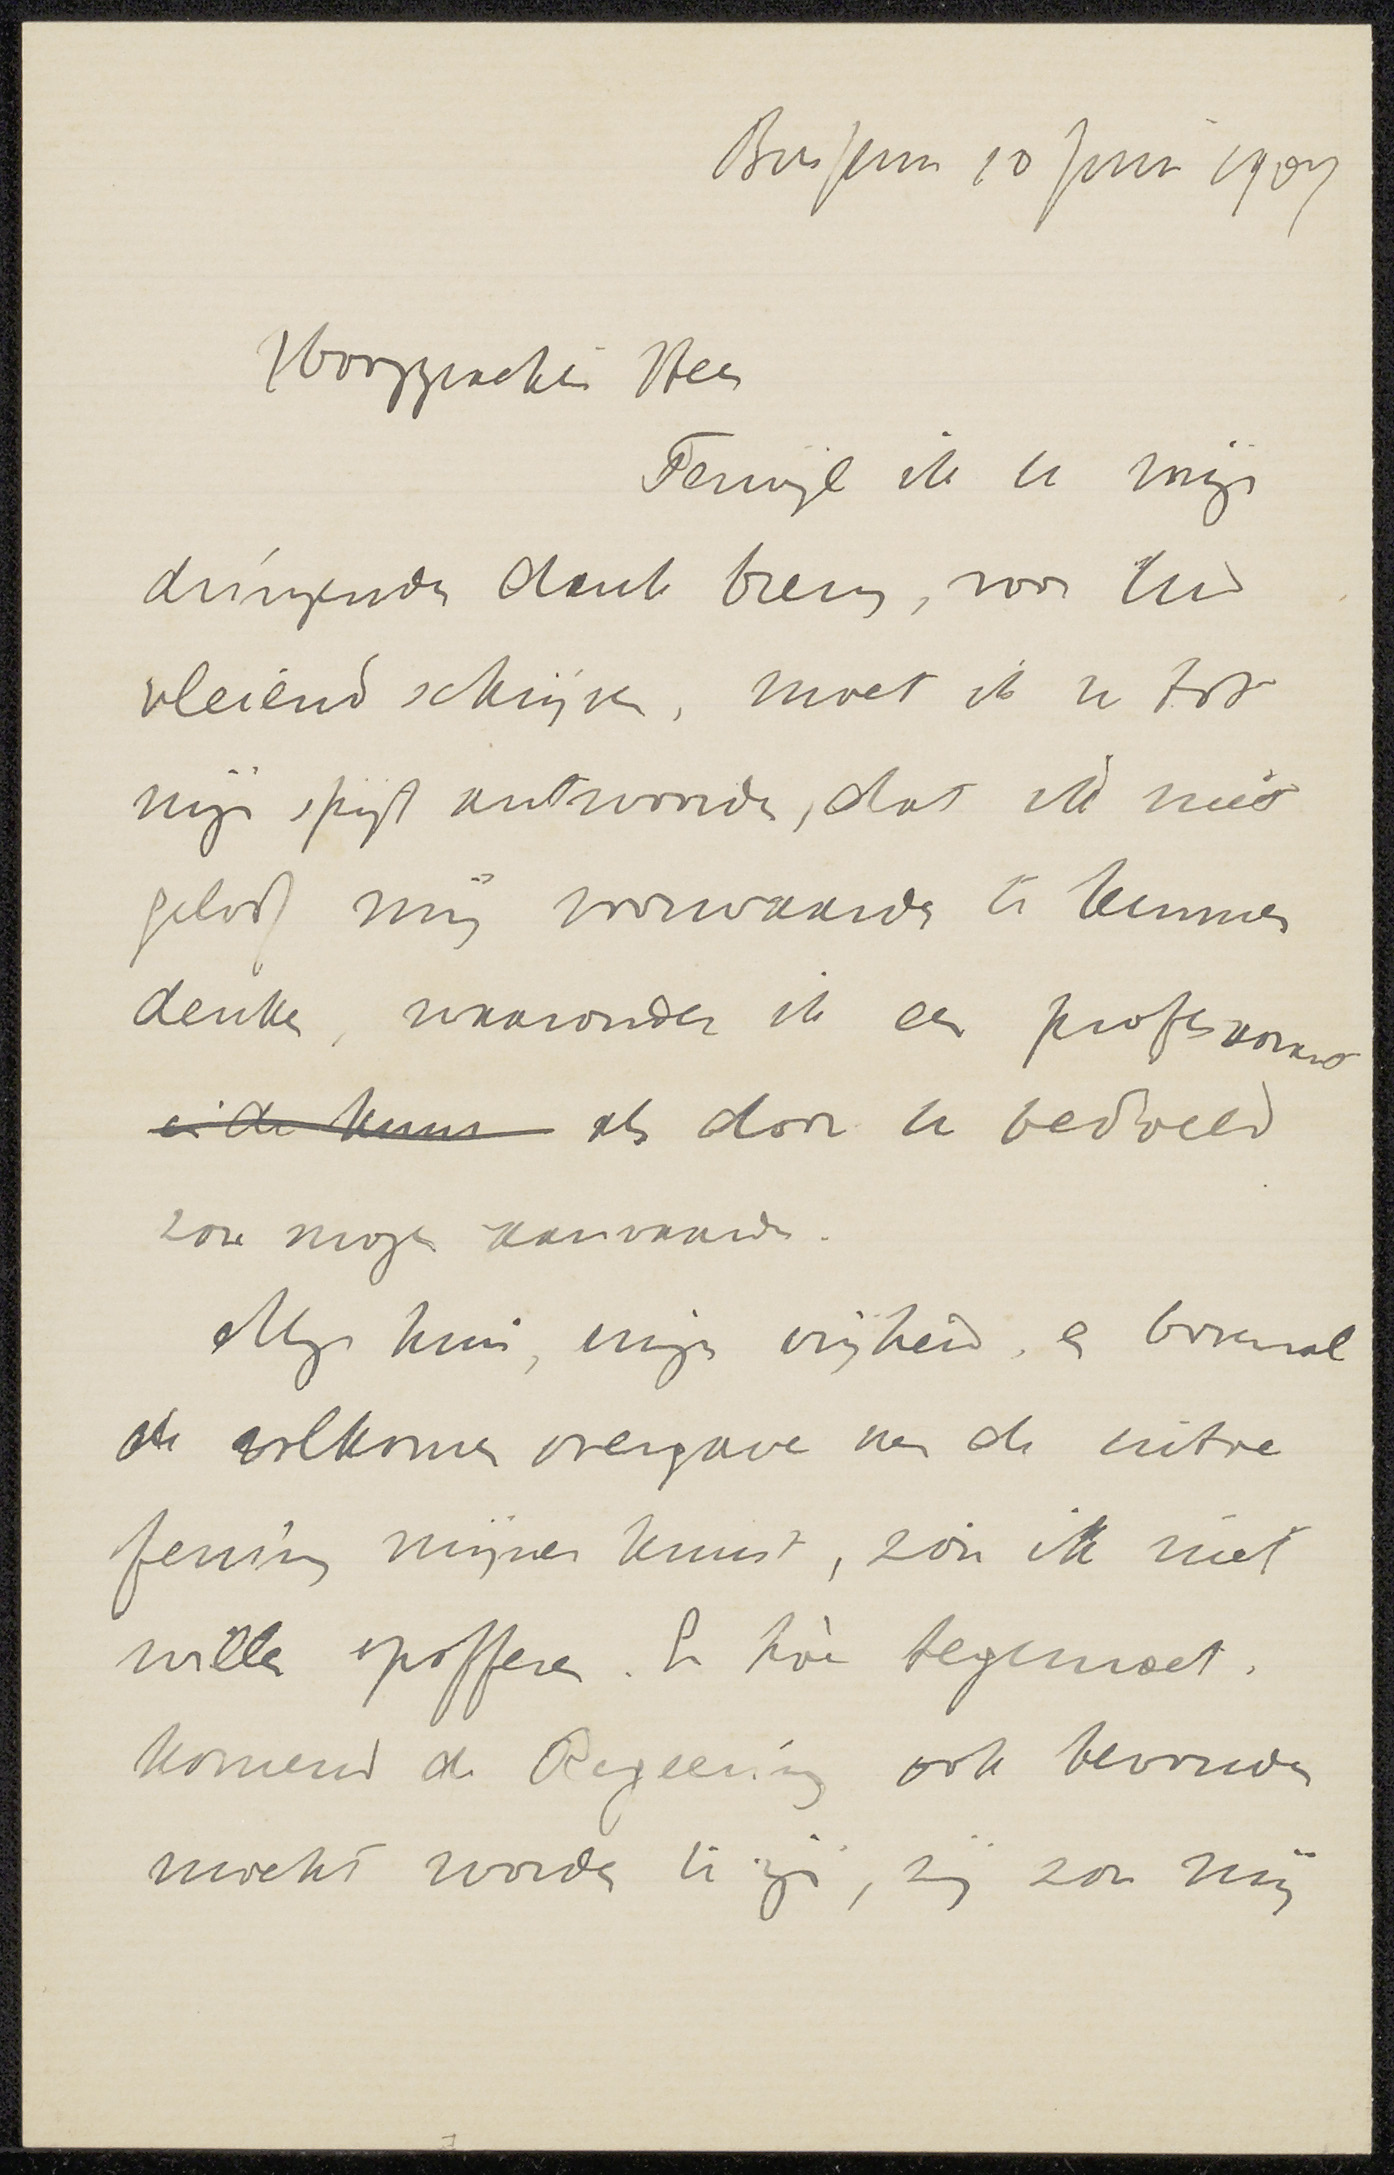 Bussum 10 Juni 1907
Hooggeachte Heer
Terwijl ik u mijn
dringenden dank breng, voor Uw
vleiend schrijven, moet ik u tot
mijn spijt antwoorden, dat ik niet
geloof mij voorwaarden te kunnen
denken, waaronder ik een professoraat
in de kunst als door u bedoeld
zou mogen aanvaarden.
Mijn huis, mijn vrijheid, en bovenal
de volkomen overgave aan de uitoe
fening mijner kunst, zou ik niet
willen opofferen. En hoe tegemoet.
komend de Regeering ook bevonden
mocht worden te zijn, zij zou mij